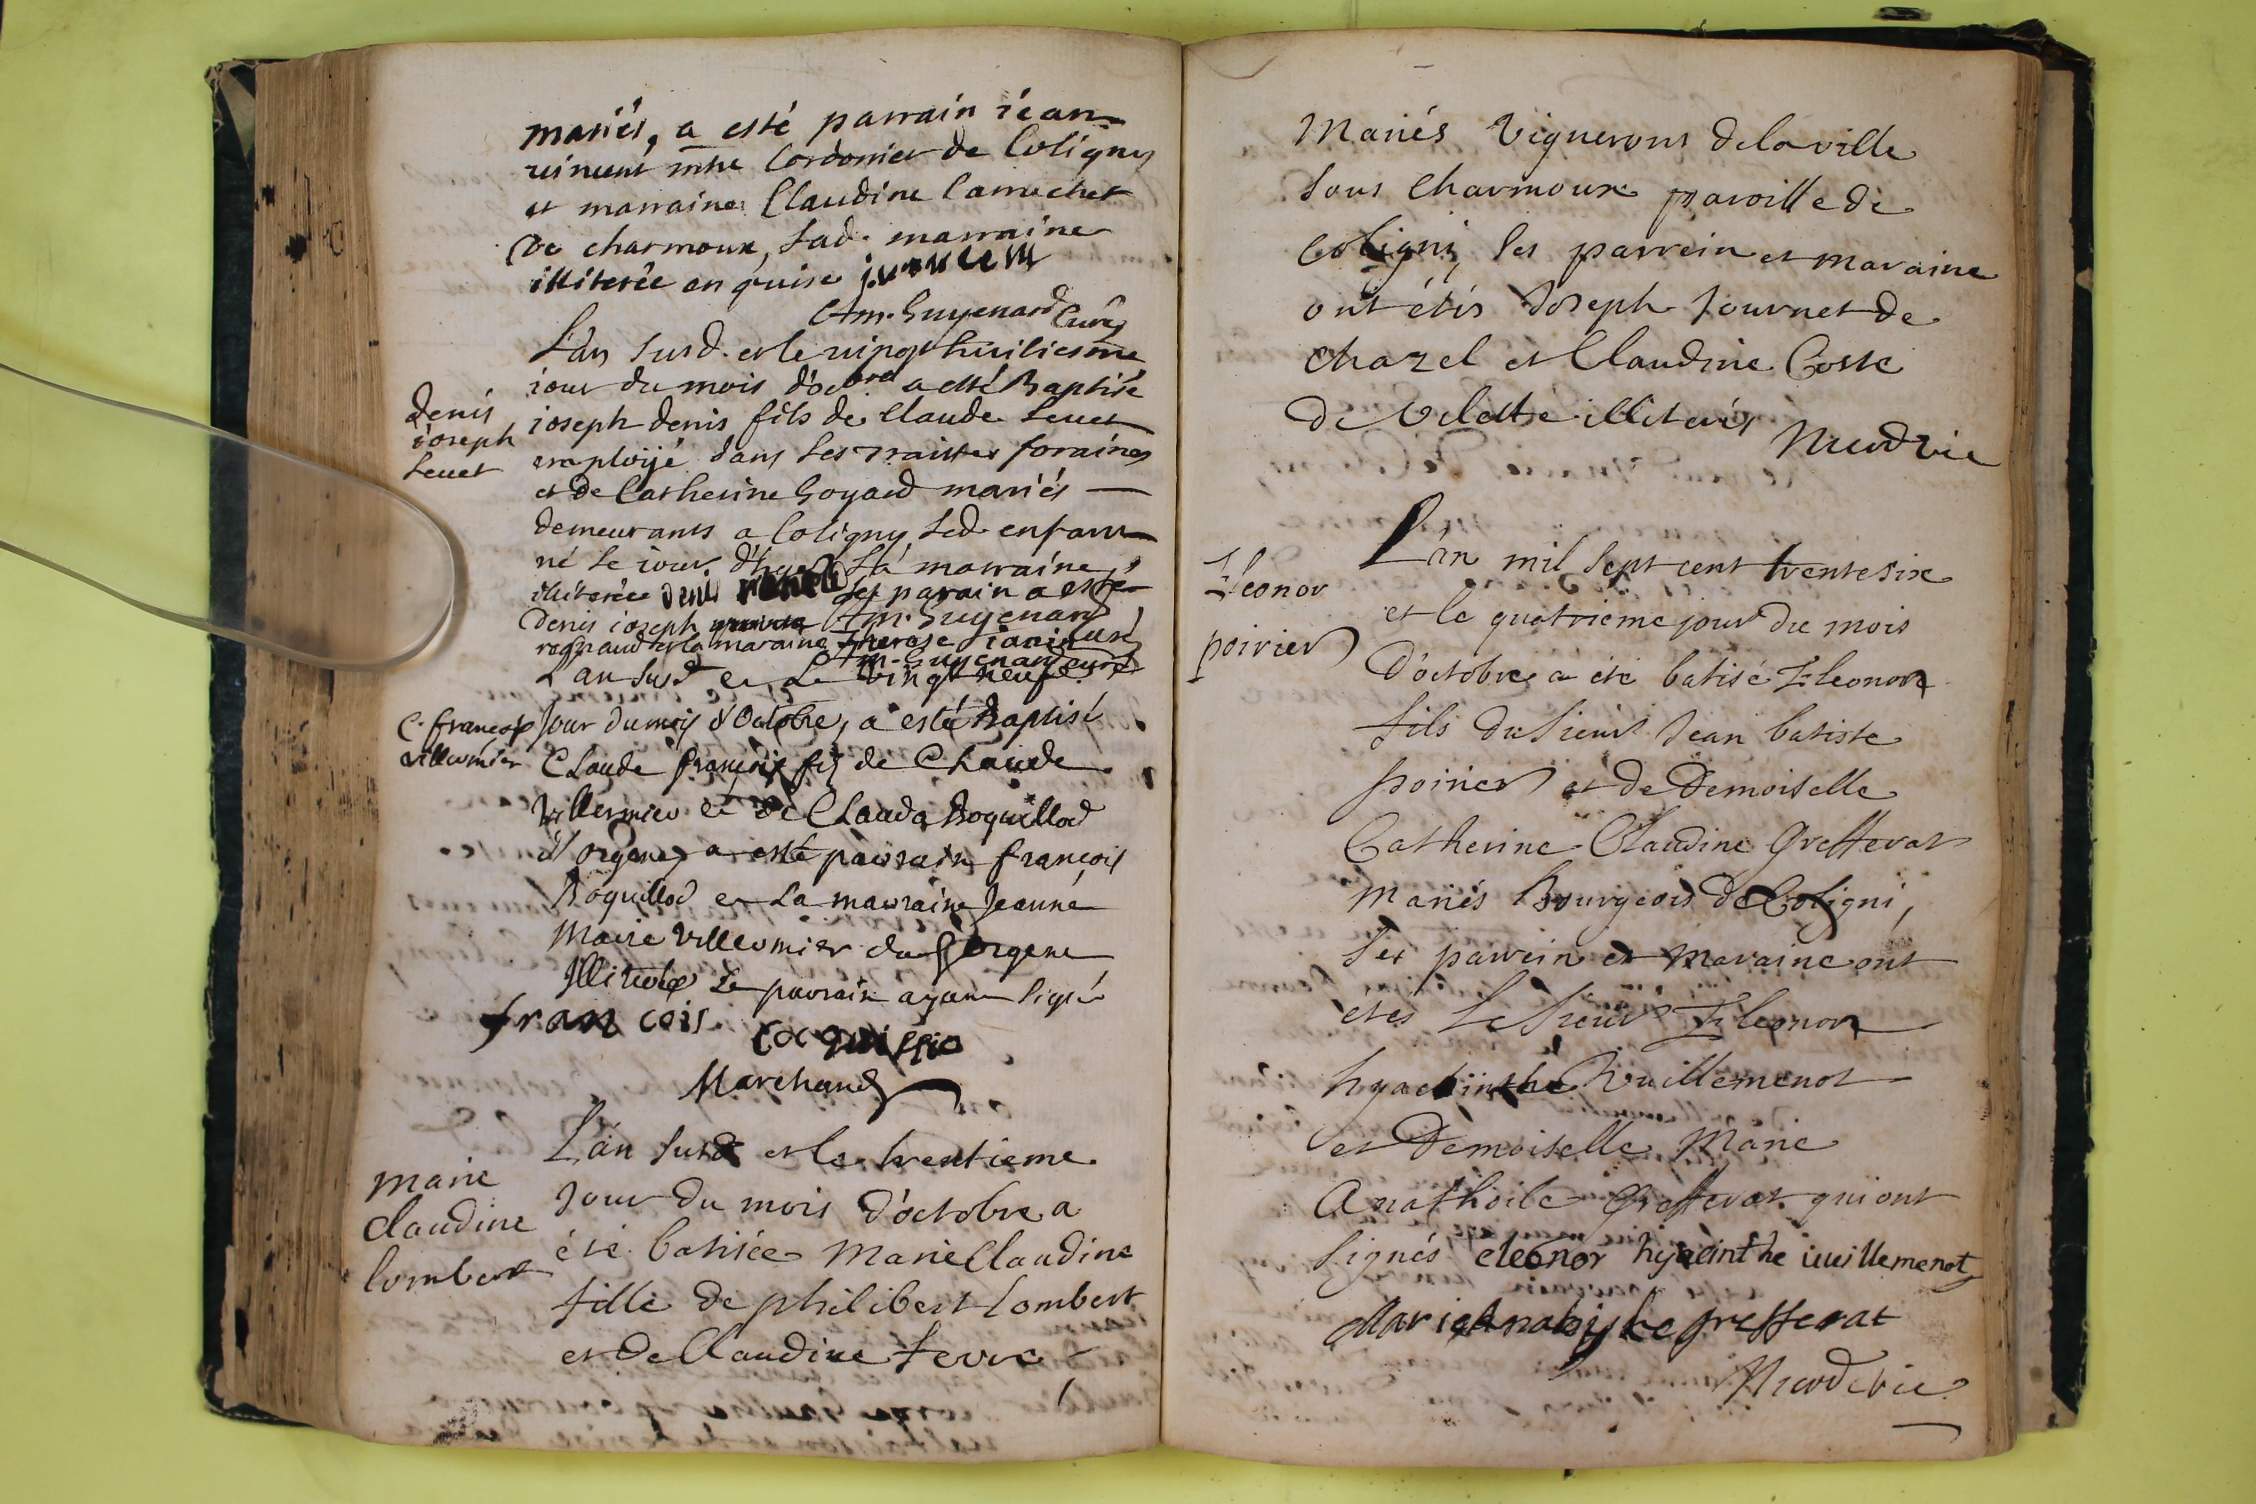 mariés, a esté parrain iean
uincent mtre Cordonier de Coligny
et marraine Claudine Camuchet
De charmoux, lad. marraine
illiterée enquise
Am. Guyenard Curé
L'an susd. et le vingt huitiesme
iour du mois d'octobre a esté Baptisé
denis
ioseph
Leuet
ioseph denis fils de Claude Leuet
employé dans les traittes foraines
et de Catherine Goyard mariés
demeurants a Coligny, led. enfant
né le iour d'hyer La marraine
illiterée denis Les parain a esté
Denis ioseph Am. Guyenard
regnaud et la maraine Therese
Am. Guyenard curé
L'an susd et Le vingt neufe
C. françois
villermier
Jour du mois d'Octobre, a esté Baptisé
Claude françois fis de Claude
Villermier et de Clauda Boquillod
d'orgene, a esté parrain françois
Boquillod et La marraine Jeanne
Marie Villermier du dorgene
Illiterée Le parrain ayant signé
fran cois
Marchand
marie
claudine
lombert
L'an susd et le trentieme
Jour du mois d'octobre a
été batisée Marie Claudine
fille de philibert Lombert
et de Claudine fevre
Mariés Vignerons de la ville
sous Charmoux paroisse de
Coligni, ses parrein et maraine
ont étés Joseph Journet de
chazel et Claudine Coste
de Villette illiterés
L'an mil sept cent trente six
Eleonor
poirier
et le quatrieme jour du mois
D'octobre a été batisé Eleonor
fils du sieur Jean batiste
poirier et de Demoiselle
Catherine Claudine Grefferat
Mariés Bourgeois de Coligni,
ses parrein et maraine ont
étés Le sieur Eleonor
hyachinthe Vuillemenot
et Demoiselle Marie
Anathoile Grefferat qui ont
signés eleonor hyacinthe vueillemenot
Marie Anatoylle grefferat